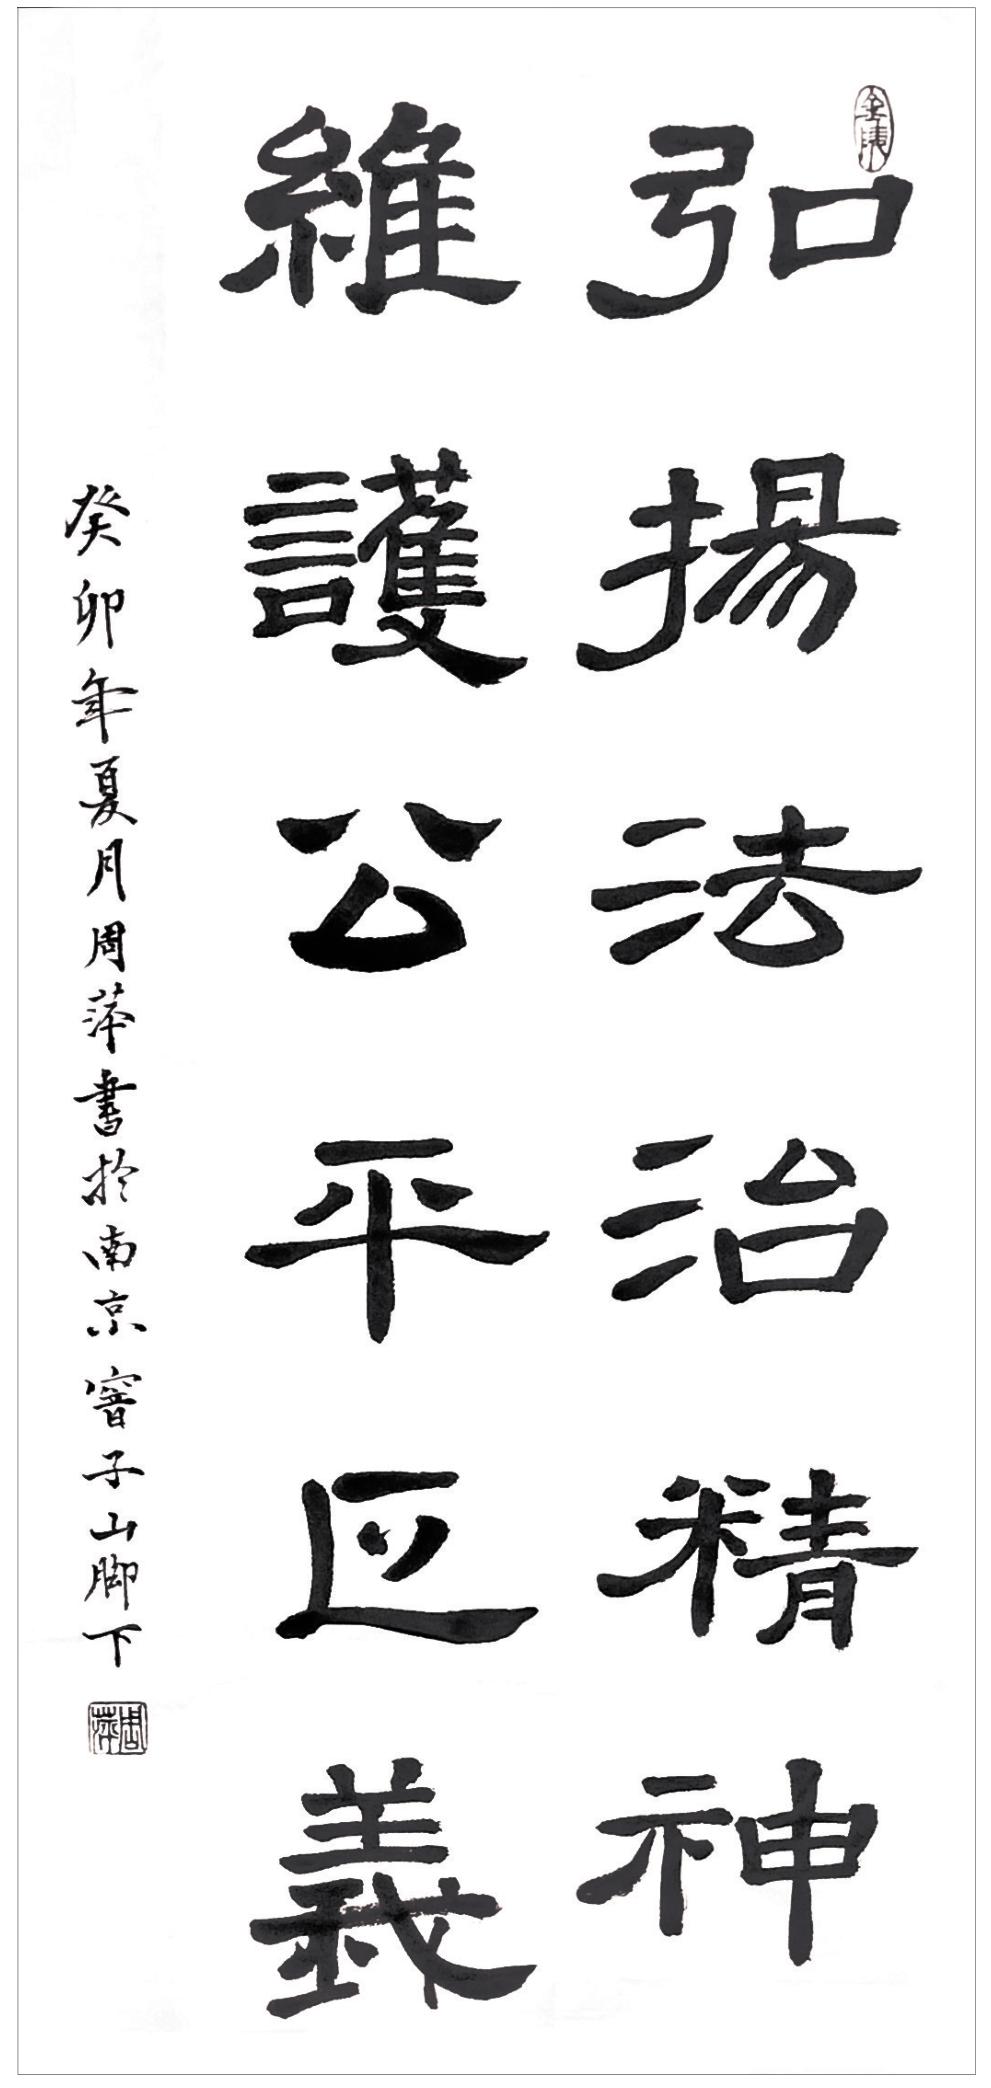 金陵
弘揚法治精神
維護公平正義
癸卯年夏月周萍書於南京窨子山脚下
周萍